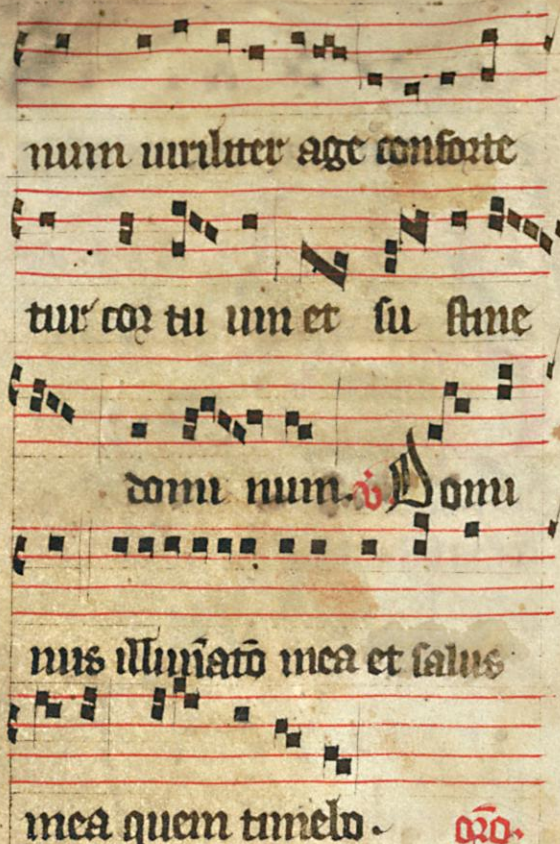 num uiriliter age conforte
tur cor tu um et su stine
domi num. v̄ Domi
nus illumīatō mea et salus
mea quem timebo. or̄o.